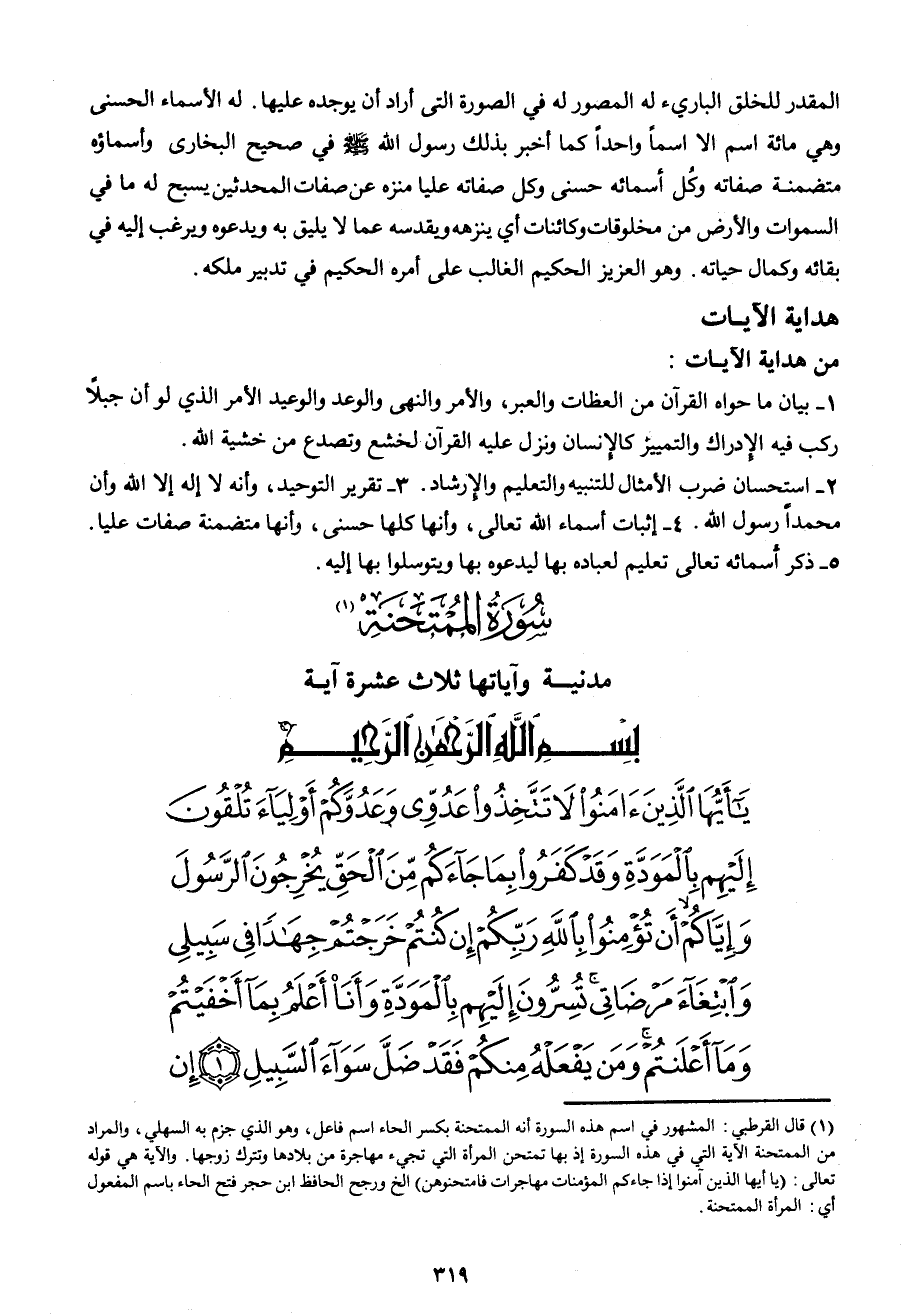 المقدر للخلق الباريء له المصور له في الصورة التى أراد أن يوجده عليها. له الأسماء الحسنى
وهي مائة اسم الا اسماً واحداً كما أخبر بذلك رسول الله ﷺ في صحيح البخارى وأسماؤه
متضمنة صفاته وكُل أسمائه حسنى وكل صفاته عليا منزه عن صفات المحدثين يسبح له ما في
السموات والأرض من مخلوقات وكائنات أي ينزهه ويقدسه عما لا يليق به ويدعوه ويرغب إليه في
بقائه وكمال حياته. وهو العزيز الحكيم الغالب على أمره الحكيم في تدبير ملكه.
هداية الآيـات
من هداية الآيـات :
١ـ بيان ما حواه القرآن من العظات والعبر، والأمر والنهى والوعد والوعيد الأمر الذي لو أن جبلًا
ركب فيه الإدراك والتمييز كالإنسان ونزل عليه القرآن لخشع وتصدع من خشية الله.
٢ـ استحسان ضرب الأمثال للتنبيه والتعليم والإرشاد. ٣ـ تقرير التوحيد، وأنه لا إله إلا الله وأن
محمداً رسول الله. ٤ـ إثبات أسماء الله تعالى، وأنها كلها حسنى، وأنها متضمنة صفات عليا.
٥ـ ذكر أسمائه تعالى تعليم لعباده بها ليدعوه بها ويتوسلوا بها إليه.
سُورَةُ المُمْتَحنَةِ (١)
مدنيـة وآياتها ثلاث عشرة آية
بِسْـــمِ ٱللَّهِ ٱلرَّحْمَٰنِ ٱلرَّحِيـــمِ
يَٰٓأَيُّهَا ٱلَّذِينَ ءَامَنُوا۟ لَا تَتَّخِذُوا۟ عَدُوِّى وَعَدُوَّكُمْ أَوْلِيَآءَ تُلْقُونَ
إِلَيْهِم بِٱلْمَوَدَّةِ وَقَدْ كَفَرُوا۟ بِمَا جَآءَكُم مِّنَ ٱلْحَقِّ يُخْرِجُونَ ٱلرَّسُولَ
وَإِيَّاكُمْ ۙ أَن تُؤْمِنُوا۟ بِٱللَّهِ رَبِّكُمْ إِن كُنتُمْ خَرَجْتُمْ جِهَٰدًا فِى سَبِيلِى
وَٱبْتِغَآءَ مَرْضَاتِى ۚ تُسِرُّونَ إِلَيْهِم بِٱلْمَوَدَّةِ وَأَنَا۠ أَعْلَمُ بِمَآ أَخْفَيْتُمْ
وَمَآ أَعْلَنتُمْ ۚ وَمَن يَفْعَلْهُ مِنكُمْ فَقَدْ ضَلَّ سَوَآءَ ٱلسَّبِيلِ ۝١ إِن
(١) قال القرطبي: المشهور في اسم هذه السورة أنه الممتحنة بكسر الحاء اسم فاعل، وهو الذي جزم به السهلي، والمراد
من الممتحنة الآية التي في هذه السورة إذ بها تمتحن المرأة التي تجيء مهاجرة من بلادها وتترك زوجها. والآية هي قوله
تعالى: (يا أيها الذين آمنوا إذا جاءكم المؤمنات مهاجرات فامتحنوهن) الخ ورجح الحافظ ابن حجر فتح الحاء باسم المفعول
أي: المرأة الممتحنة.
٣١٩